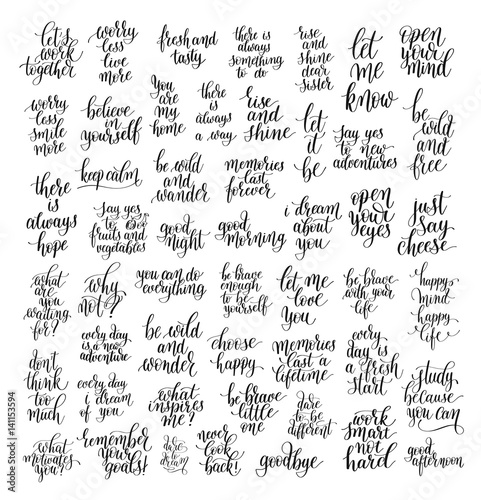 let's
work
together
worry
less
live
more
fresh and
tasty
there is
always
something
to do
rise
and
shine
dear
sister
let
me
know
open
your
mind
worry
less
smile
more
believe
in
yourself
you
are
my
home
there
is
always
a way
rise
and
shine
let
it
be
say yes
to new
adventures
be
wild
and
free
there
is
always
hope
keep calm
be wild
and
wander
memories
last
forever
say yes
to
fruits and
vegetables
good
night
good
morning
i dream
about
you
open
your
eyes
just
say
cheese
what
are
you
waiting
for?
why
not?
you can do
everything
be brave
enough
to be
yourself
let me
love
you
be brave
with your
life
happy
mind
happy
life
every
day is
a new
adventure
be wild
and
wonder
choose
happy
memories
last a
lifetime
every
day is
a fresh
start
don't
think
too
much
every day
i dream
of you
what
inspires
me?
be brave
little
one
dare
to be
different
study
because
you can
what
motivates
you?
remember
your
goals!
dare
to
dream
never
look
back!
goodbye
work
smart
not
hard
good
afternoon
Adobe Stock
#141153594